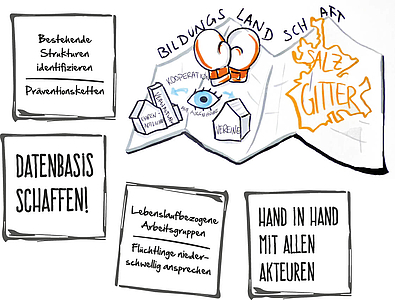 BILDUNGSLANDSCHAFT
SALZ
GITTER
KOOPERATION
VEREINE
Bestehende
Strukturen
identifizieren
Präventionsketten
DATENBASIS
SCHAFFEN!
Lebenslaufbezogene
Arbeitsgruppen
Flüchtlinge nieder-
schwellig ansprechen
HAND IN HAND
MIT ALLEN
AKTEUREN